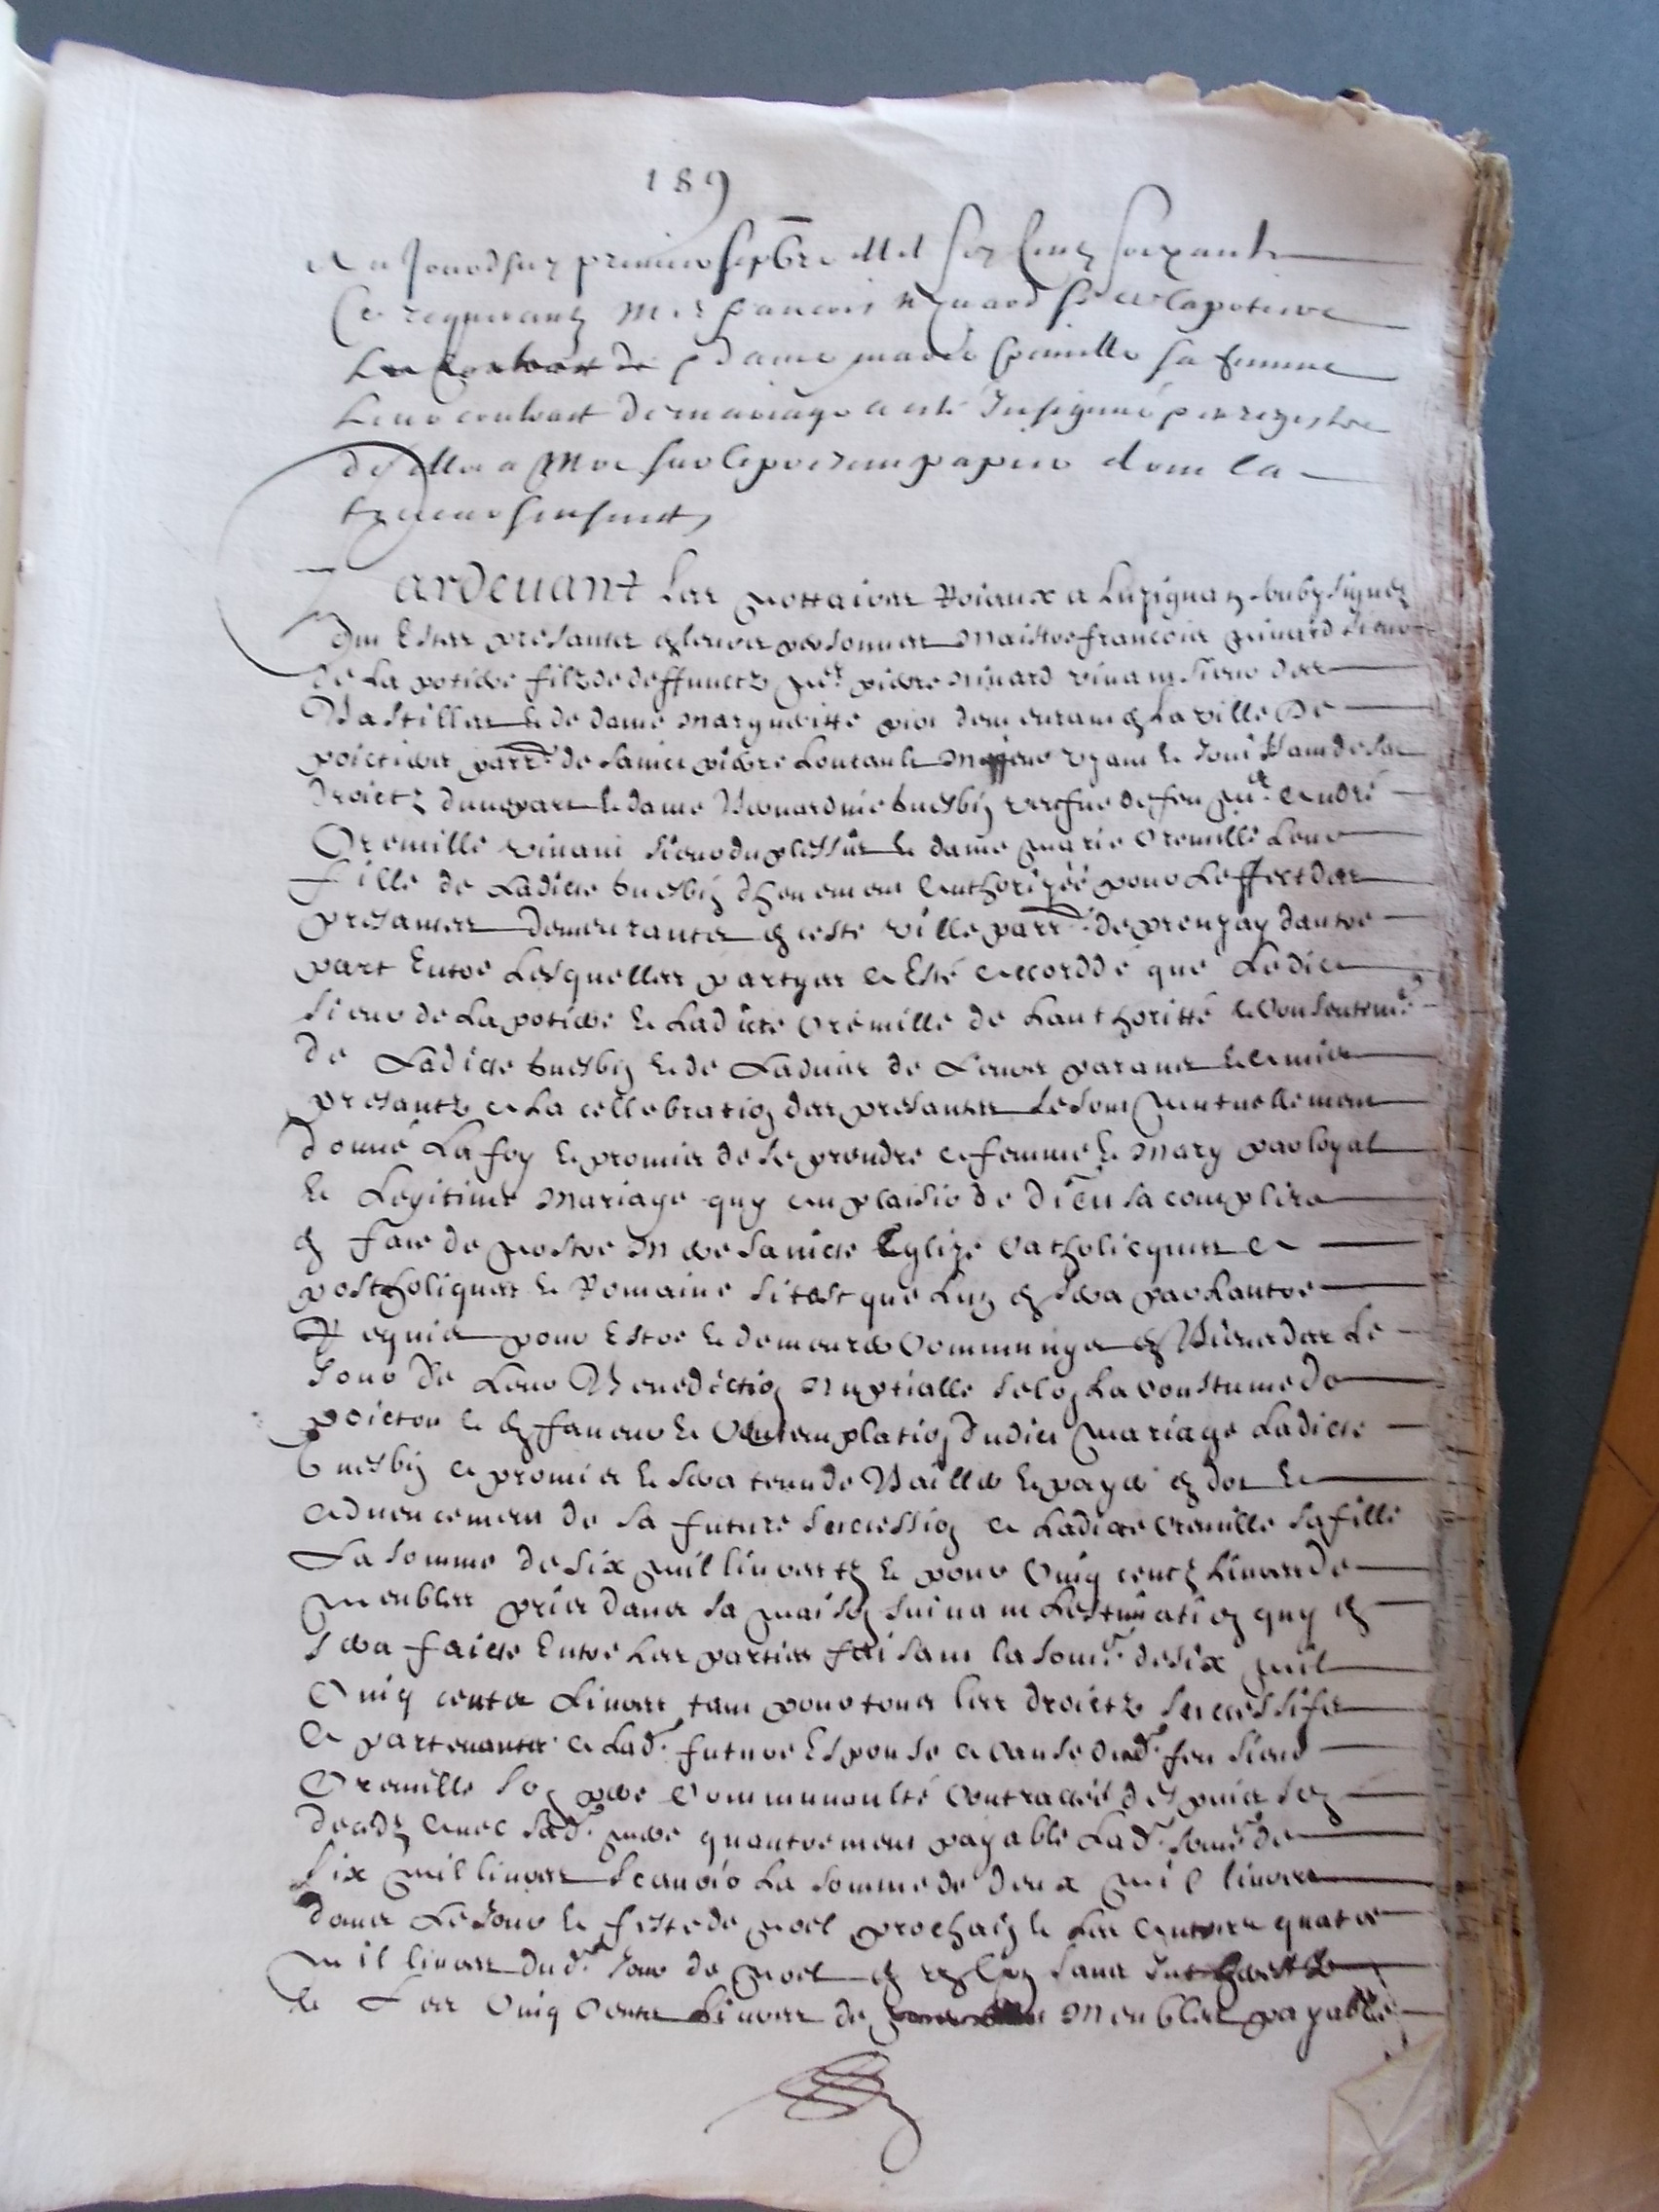 189
Aujourdhuy premier septbre Mil six Cens soixante
Ce requerant Me francois Minard sr de la potiere
dame marie Cremille sa femme
leur contract de mariage a esté Insignué et registré
a Moy sur le present papier dont la
teneur sensuit
Pardevant Les nottaires Roiaux a Luzignan soubzsignez
ont Estez presantz en leurs personnes Maistre francois minard sieur
de La potiere filz de deffunctz me pierre minard vivant sieur des
Bastilles et de dame Margueritte demeurant en La ville De
poictiers parr. de sainct pierre Loutault Majeur uzant et Jouissant de ses
droictz dunepart et dame Bernardine vefve de feu me André
Cremille vivant sieur du plessis et dame marie Cremille Leur
fille de Ladicte dhuement Authorizée pour Leffect des
presantes demeurantes en ceste ville parr. de prouzay dautre
part Entre Lesquelles partyes a Esté accorddé que Ledict
sieur de La potiere et Ladicte Cremille de Lauthoritté et Consentemt
de Ladicte et de Ladvis de Leurs parans et amis
presantz a La cellebration des presantes se sont mutuellement
donné La foy et promis de se prendre a femme et Mary par loyal
et Legitime Mariage quy au plaisir de dieu sacomplira
en face de nostre Mere saincte Eglize Catholicques A
postholiques et Romaine sitost que Lun en sera par Lautre
Requis pour Estre et demeurer Communs en Biens des Le
Jour de Leur Benediction Nuptialle selon La Coustume de
poictou et en faveur et Contemplation dudict mariage Ladicte
a promis et sera tenu de Bailler et payer en dot et
advencement de sa future succession a Ladicte Cremille sa fille
La somme de six mil livres tz et pour Cinq centz Livres de
meubles pris dans sa maison suivant Lestimation quy en
sera faicte Entre Les parties faisant la some de six mil
Cinq centz Livres tant pour tous les droictz successifs
Apartenantz a Lad. future Espouse a Cause dud. feu sieur
Cremille son pere Communaulté Contractée despuis son
deceds avec sad. mere quautrement payable Lad. some de
six mil livres scavoir La somme de deux mil livres
dans Le Jour et feste de noel prochain et Les autres quatre
mil livres dud. Jour de noel en un an sans Intherestz
et Les Cinq Centz Livres de Meubles payable